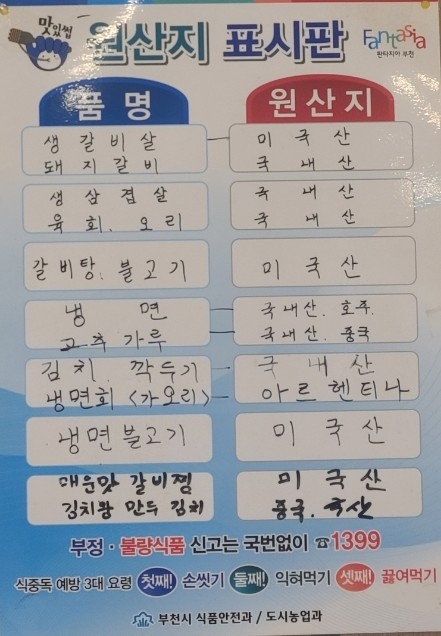 맛있썹
원산지 표시판
Fantasia
판타지아 부천
품 명 원 산 지
생 갈 비 살 미 국 산
돼 지 갈 비 국 내 산
생 삼 겹 살 국 내 산
육 회. 오 리 국 내 산
갈 비 탕. 불 고 기 미 국 산
냉 면 국 내 산. 호주.
고 추 가 루 국 내산. 중국
김 치. 깍 두 기 국 내 산
냉 면 회 <가 오 리> 아 르 헨 티 나
냉 면 불 고 기 미 국 산
매운맛 갈비찜 미 국 산
김치왕 만두 김치 중국.
부정·불량식품 신고는 국번없이 ☎1399
식중독 예방 3대 요령 첫째! 손씻기 둘째! 익혀먹기 셋째! 끓여먹기
부천시 식품안전과 / 도시농업과